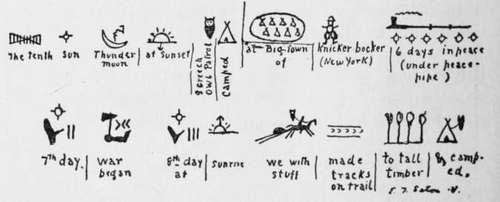 The tenth sun Thunder moon at sunset Screech Owl Patrol Camped at Big-Town of Knicker bocker (New York) 6 days in peace (under peace-pipe)
7th day. war began 8th day at sunrise we with stuff made tracks on trail to tall timber & camped.